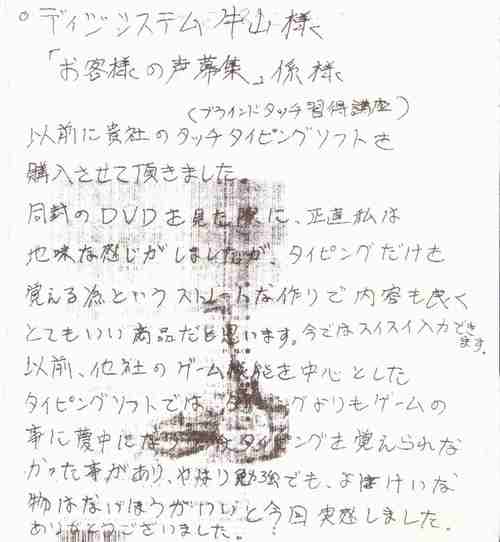 ○ディジシステム 牛山様
「お客様の声募集」係様
(ブラインドタッチ習得講座)
以前に貴社のタッチタイピングソフトを
購入させて頂きました。
同封のDVDを見た際に、正直私は
地味な感じがしましたが、タイピングだけを
覚える為というストレートな作りで内容も良く
とてもいい商品だと思います。今ではスイスイ入力できます。
以前、他社のゲーム機能を中心とした
タイピングソフトでは、よりもゲームの
事に夢中になり タイピングを覚えられな
かった事があり、やはり勉強でも、よけいな
物はないほうがいいと今回実感しました。
ありがとうございました。